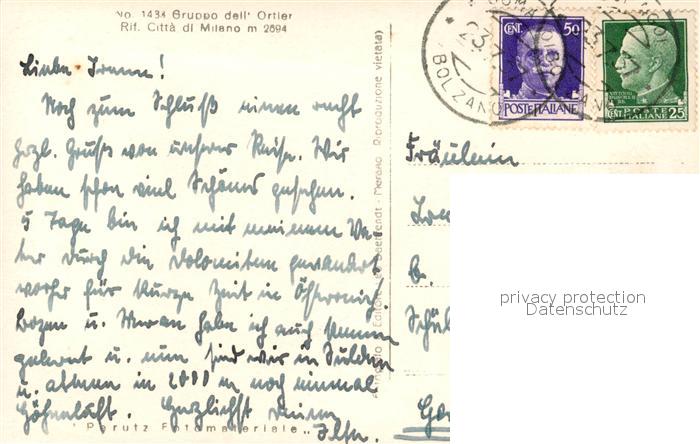 No. 1434 Gruppo dell' Ortler
Rif. Città di Milano m 2694
Liebe Irene!
Noch zum Schluß einen recht
herzl. Gruß von unserer Reise. Wir
haben schon viel Schönes gesehen.
5 Tage bin ich mit meinem Va-
ter durch die Dolomiten gewandert
vorher für kurze Zeit in Österreich,
Bozen u. Meran habe ich auch kennen
gelernt u. nun sind wir in Sulden
u. atmen in 2000 m noch einmal
Höhenluft. Herzlichst deine
Ilse.
"Perutz Fotomateriale"
Riproduzione vietata)
Merano
BOLZANO
CENT. 50
POSTE ITALIANE
CENT. 25
POSTE ITALIANE
Fräulein
b.
privacy protection
Datenschutz